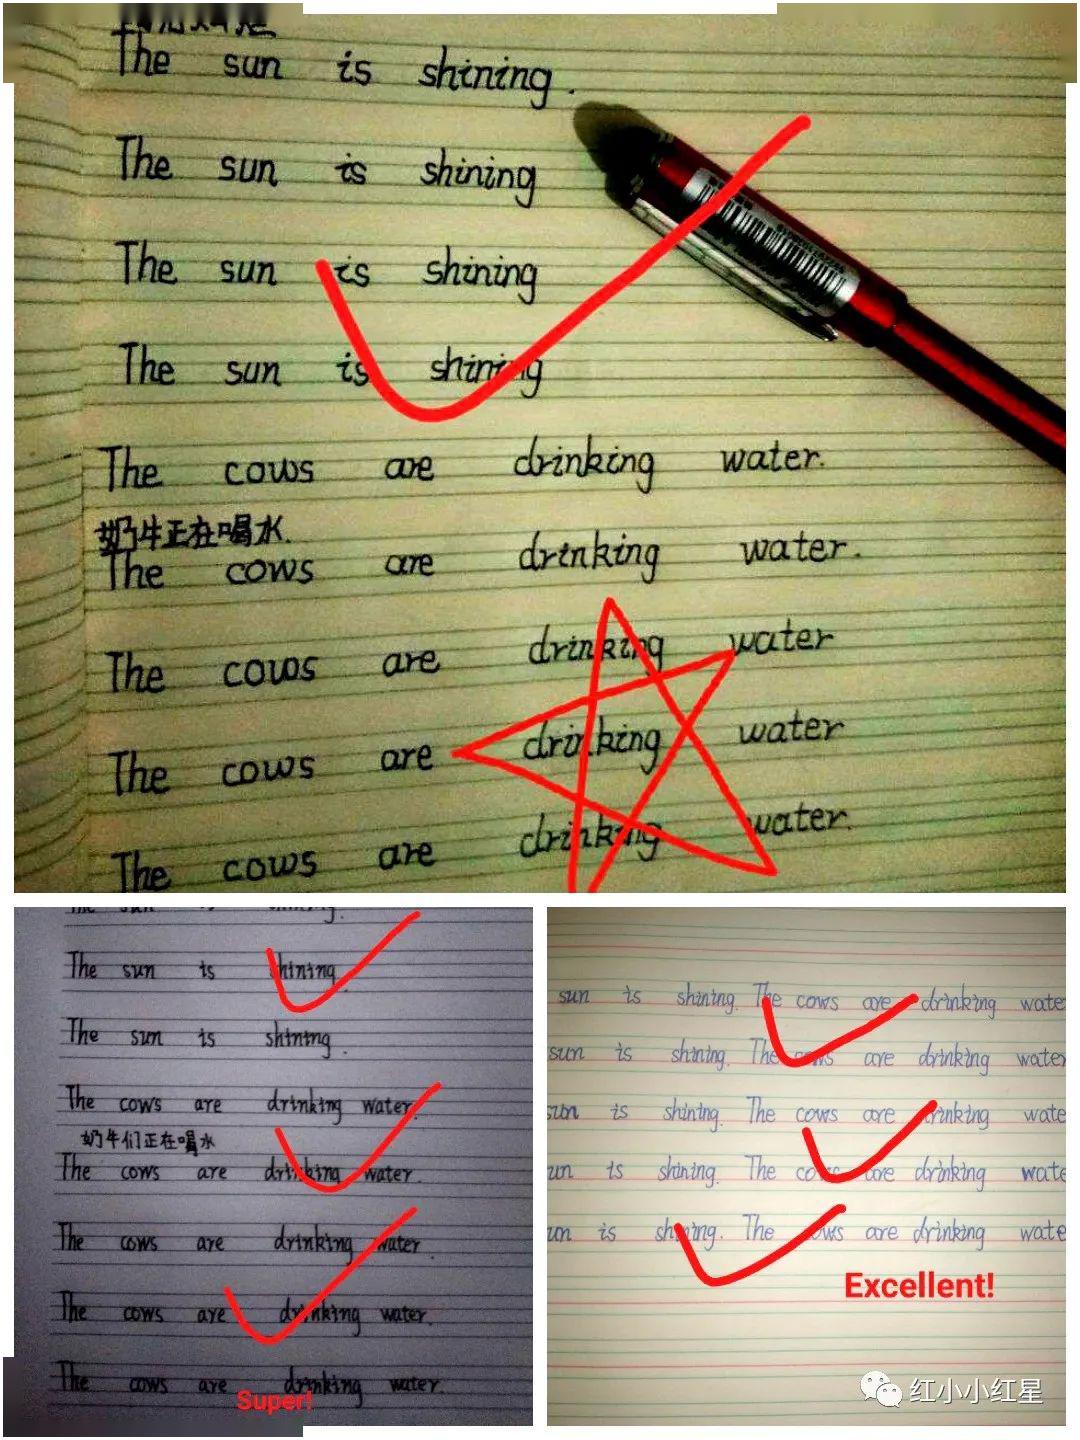 The sun is shining.
The sun is shining
The sun is shining
The sun is shining
The cows are drinking water.
奶牛正在喝水.
The cows are drinking water.
The cows are drinking water
The cows are drinking water
The cows are drinking water.
The sun is shining.
The sun is shining.
The sun is shining.
The cows are drinking water.
奶牛们正在喝水
The cows are drinking water.
The cows are drinking water.
The cows are drinking water.
The cows are drinking water.
Super!
sun is shining. The cows are drinking wate
sun is shining. The cows are drinking water
sun is shining. The cows are drinking wate
un is shining. The cows are drinking wate
un is shining. The cows are drinking wate
Excellent!
红小小红星